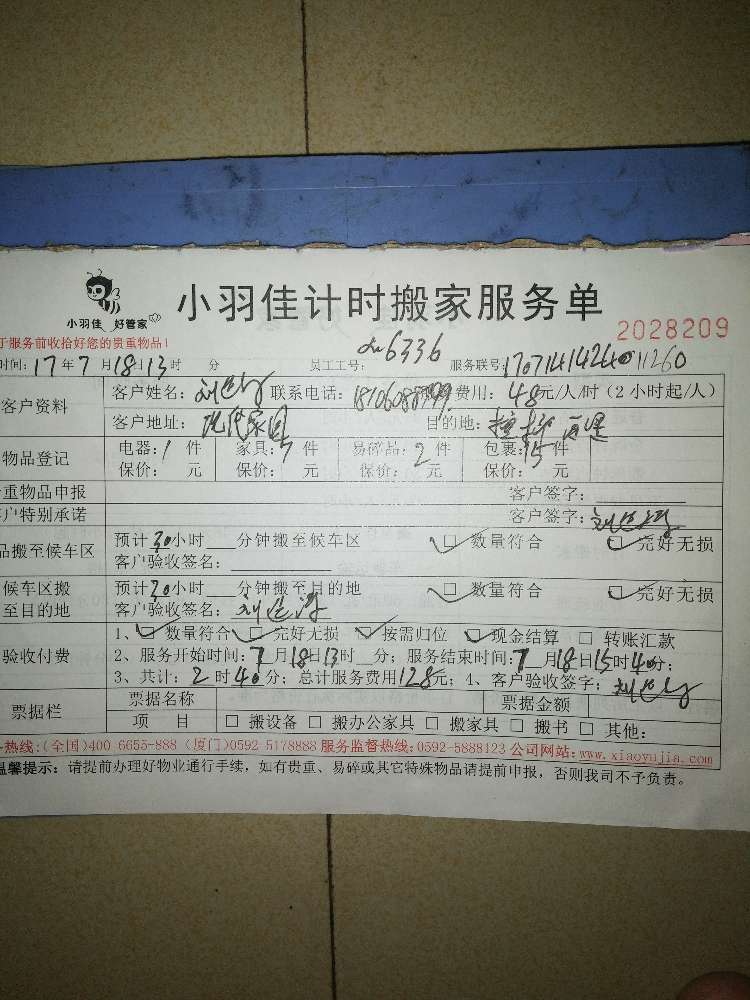 小羽佳 好管家
小羽佳计时搬家服务单
2028209
于服务前收拾好您的贵重物品!
时间:17年7月18日13时 分 员工工号: 6336 服务联号1707141424011260
客户资料 客户姓名: 联系电话: 费用:48元/人/时(2小时起/人)
客户地址:现代家园 目的地:
物品登记 电器:1件 家具:7件 易碎品:2件 包裹:15件
保价: 元 保价: 元 保价: 元 保价: 元
重物品申报 客户签字:
户特别承诺 客户签字:
品搬至候车区 预计30小时 分钟搬至候车区 ☑数量符合 ☑完好无损
客户验收签名:
候车区搬至目的地 预计20小时 分钟搬至目的地 ☑数量符合 ☑完好无损
客户验收签名:
验收付费 1、☑数量符合 ☑完好无损 ☑按需归位 ☑现金结算 □转账汇款
2、服务开始时间:7月18日13时 分;服务结束时间:7月18日15时40分;
3、共计:2时40分;总计服务费用128元;4、客户验收签字:
票据栏 票据名称 票据金额
项 目 □搬设备 □搬办公家具 □搬家具 □搬书 □其他:
热线:(全国)400 6655-888 (厦门)0592 5178888 服务监督热线:0592-5888123 公司网站:www.xiaoyujia.com
温馨提示:请提前办理好物业通行手续,如有贵重、易碎或其它特殊物品请提前申报,否则我司不予负责。